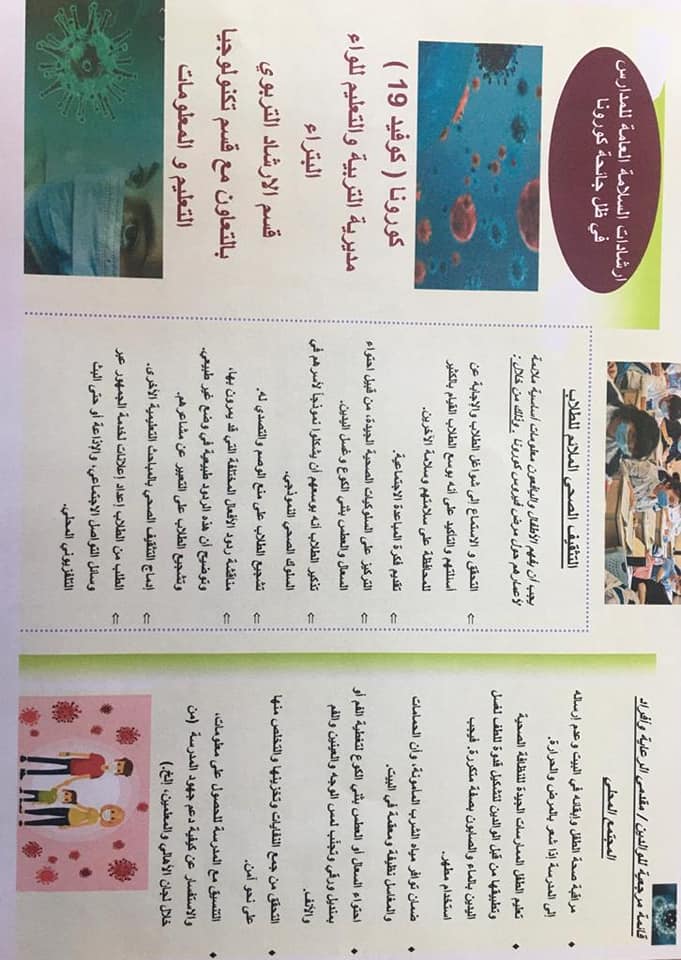 ارشادات السلامة العامة للمدارس
في ظل جائحة كورونا
كورونا ( كوفيد 19 )
مديرية التربية والتعليم للواء
البتراء
قسم الارشاد التربوي
بالتعاون مع قسم تكنولوجيا
التعليم و المعلومات
التثقيف الصحي الملائم للطلاب
يجب ان يفهم الأطفال واليافعون معلومات أساسية ملائمة
لأعمارهم حول مرض فيروس كورونا وذلك من خلال :
⇐ التحقق و الاستماع إلى شواغل الطلاب والإجابة عن
أسئلتهم والتأكيد على أنه بوسع الطلاب القيام بالكثير
للمحافظة على سلامتهم وسلامة الآخرين.
⇐ تقديم فكرة المباعدة الاجتماعية.
⇐ التركيز على السلوكيات الصحية الجيدة، من قبيل احتواء
السعال والعطس بثني الكوع وغسل اليدين.
⇐ تذكير الطلاب أنه بوسعهم أن يشكلوا نموذجاً لأسرهم في
السلوك الصحي النموذجي.
⇐ تشجيع الطلاب على منع الوصم والتصدي له.
⇐ مناقشة ردود الأفعال المختلفة التي قد يمرون بها،
وتوضيح أن هذه الردود طبيعية في وضع غير طبيعي.
وتشجيع الطلاب على التعبير عن مشاعرهم.
⇐ إدماج التثقيف الصحي بالمباحث التعليمية الأخرى.
⇐ الطلب من الطلاب إعداد إعلانات لخدمة الجمهور عبر
وسائل التواصل الاجتماعي، والإذاعة أو حتى البث
التلفزيوني المحلي.
قائمة مرجعية للوالدين / مقدمي الرعاية وأفراد
المجتمع المحلي
♦ مراقبة صحة الطفل وإبقائه في البيت وعدم إرساله
إلى المدرسة إذا شعر بالمرض والحرارة.
♦ تعليم الطفل الممارسات الجيدة للنظافة الصحية
وتطبيقها من قبل الوالدين لتشكيل قدوة للطفل لغسل
اليدين بالماء والصابون بصفة متكررة. فيجب
استخدام مطهر.
♦ ضمان توافر مياه الشرب المأمونة، وأن الحمامات
والمغاسل نظيفة ومعقمة في البيت.
♦ احتواء السعال أو العطس بثني الكوع لتغطية الفم أو
بمنديل ورقي وتجنب لمس الوجه والعينين والفم
والأنف.
♦ التحقق من جمع النفايات وتخزينها والتخلص منها
على نحو آمن.
♦ التنسيق مع المدرسة للحصول على معلومات،
والاستفسار عن كيفية دعم جهود المدرسة (من
خلال لجان الأهالي والمعلمين، إلخ.)